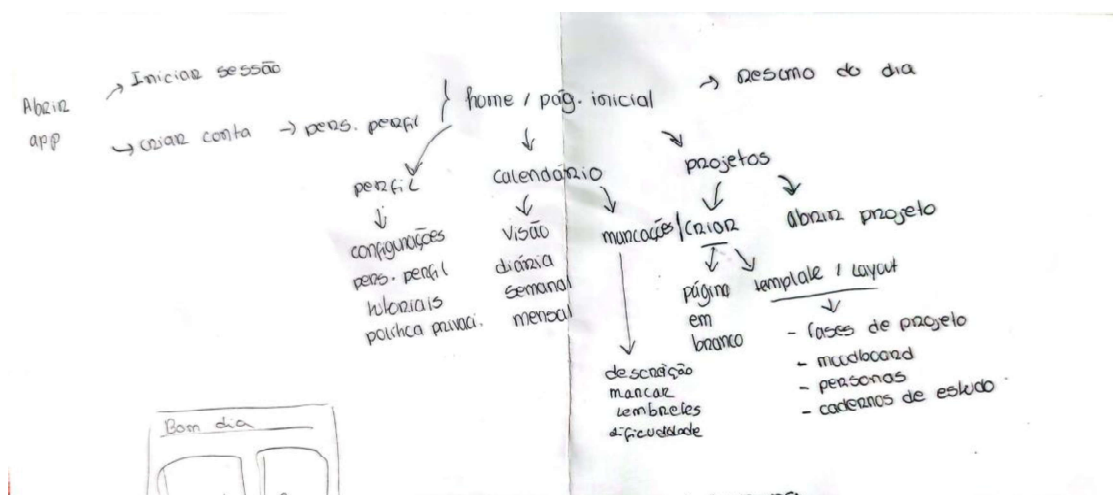 Abrir app
Iniciar sessão
criar conta → pers. perfil
home / pág. inicial
Resumo do dia
perfil
configurações
pers. perfil
tutoriais
política privaci.
calendário
visão
diária
semanal
mensal
marcações/criar
descrição
marcar
lembretes
dificuldade
projetos
abrir projeto
página
em
branco
template / layout
- fases de projeto
- moodboard
- personas
- cadernos de estudo
Bom dia